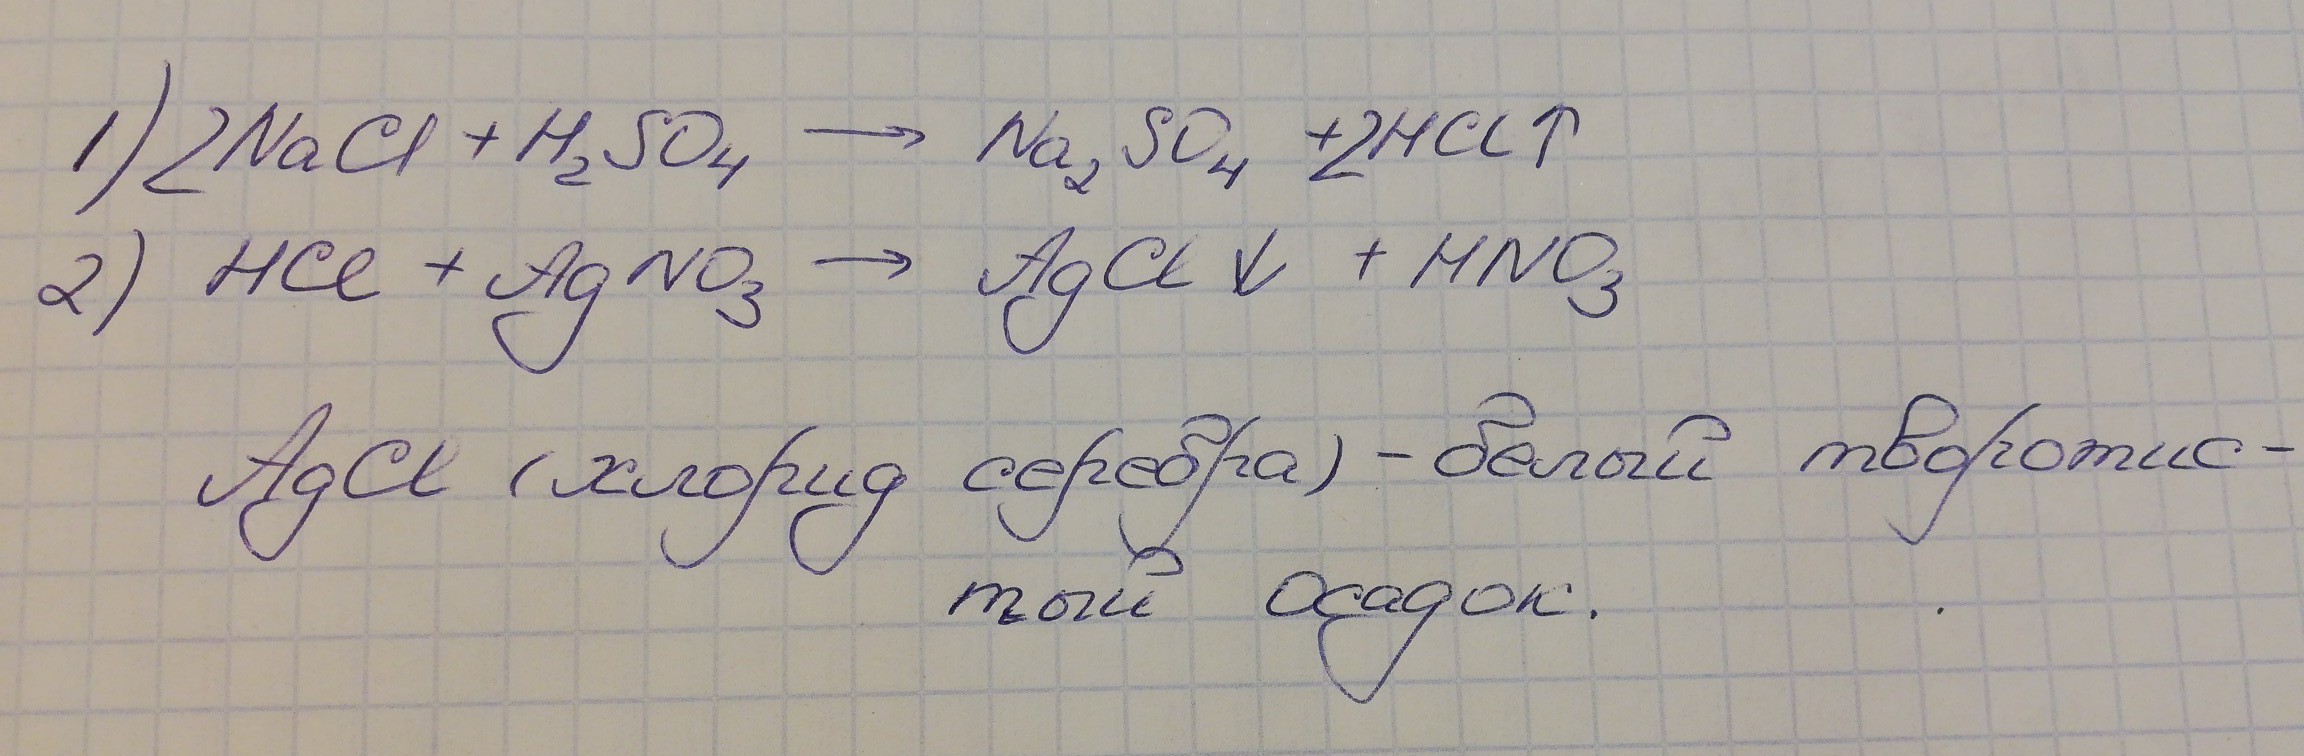 1) 2NaCl + H₂SO₄ → Na₂SO₄ + 2HCl↑
2) HCl + AgNO₃ → AgCl↓ + HNO₃
AgCl (хлорид серебра) - белый творотис-
тый осадок.